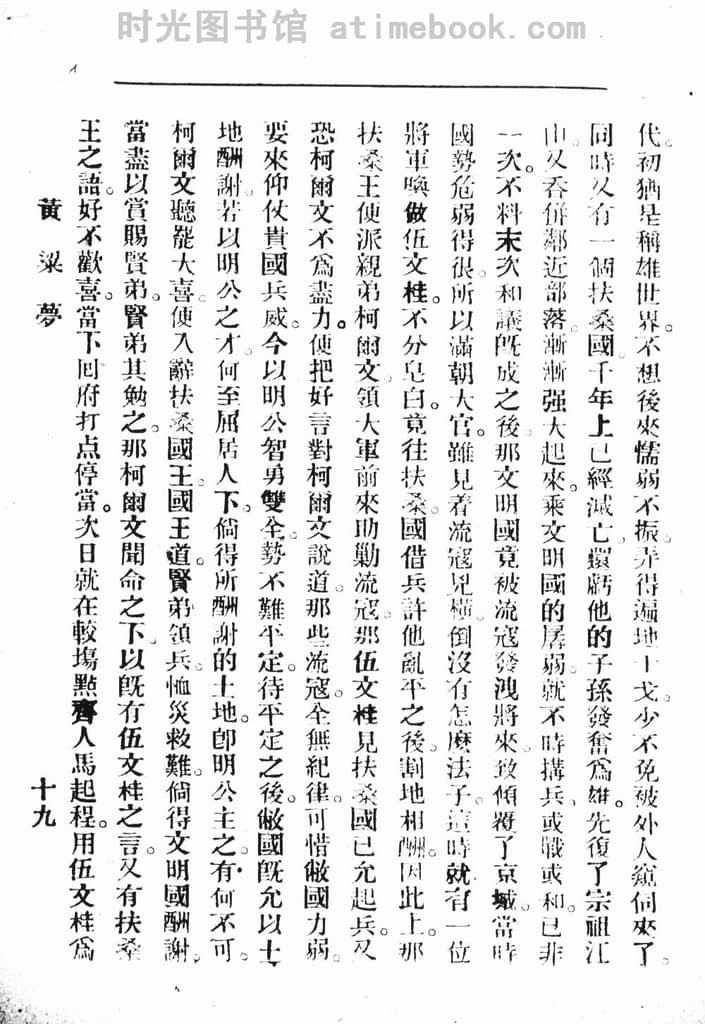 时光图书馆 atimebook.com
代。初猶是稱雄世界。不想後來懦弱不振。弄得遍地干戈。少不免被外人窺伺來了。
同時又有一個扶桑國千年上已經滅亡。還虧他的子孫發奮爲雄。先復了宗祖江
山又吞併鄰近部落。漸漸强大起來。乘文明國的孱弱。就不時搆兵。或戰或和。已非
一次。不料末次和議旣成之後。那文明國竟被流寇發洩將來。致傾覆了京城。當時
國勢危弱得很。所以滿朝大官。雖見着流寇兇橫。倒沒有怎麽法子。這時就有一位
將軍喚做伍文桂。不分皂白。竟往扶桑。國借兵許他亂平之後。割地相酬。因此上。那
扶桑王便派親弟柯爾文。領大軍前來助勦流寇。那伍文桂見扶桑國已允起兵。又
恐柯爾文不爲盡力。便把好言對柯爾文說道。那些流寇。全無紀律。可惜敝國力弱。
要來仰仗貴國兵威。今以明公智勇雙全。勢不難平定。待平定之後。敝國旣允以土
地酬謝。若以明公之才。何至屈居人下。倘得所酬謝的土地。卽明公主之。有何不可。
柯爾文聽罷大喜。便入辭扶桑國王。國王道。賢弟領兵。恤災救難。倘得文明國酬謝。
當盡以賞賜賢弟。賢弟其勉之。那柯爾文聞命之下。以旣有伍文桂之言。又有扶桑
王之語。好不歡喜。當下回府打点停當。次日就在較塲點齊人馬起程。用伍文桂爲
黃粱夢
十九